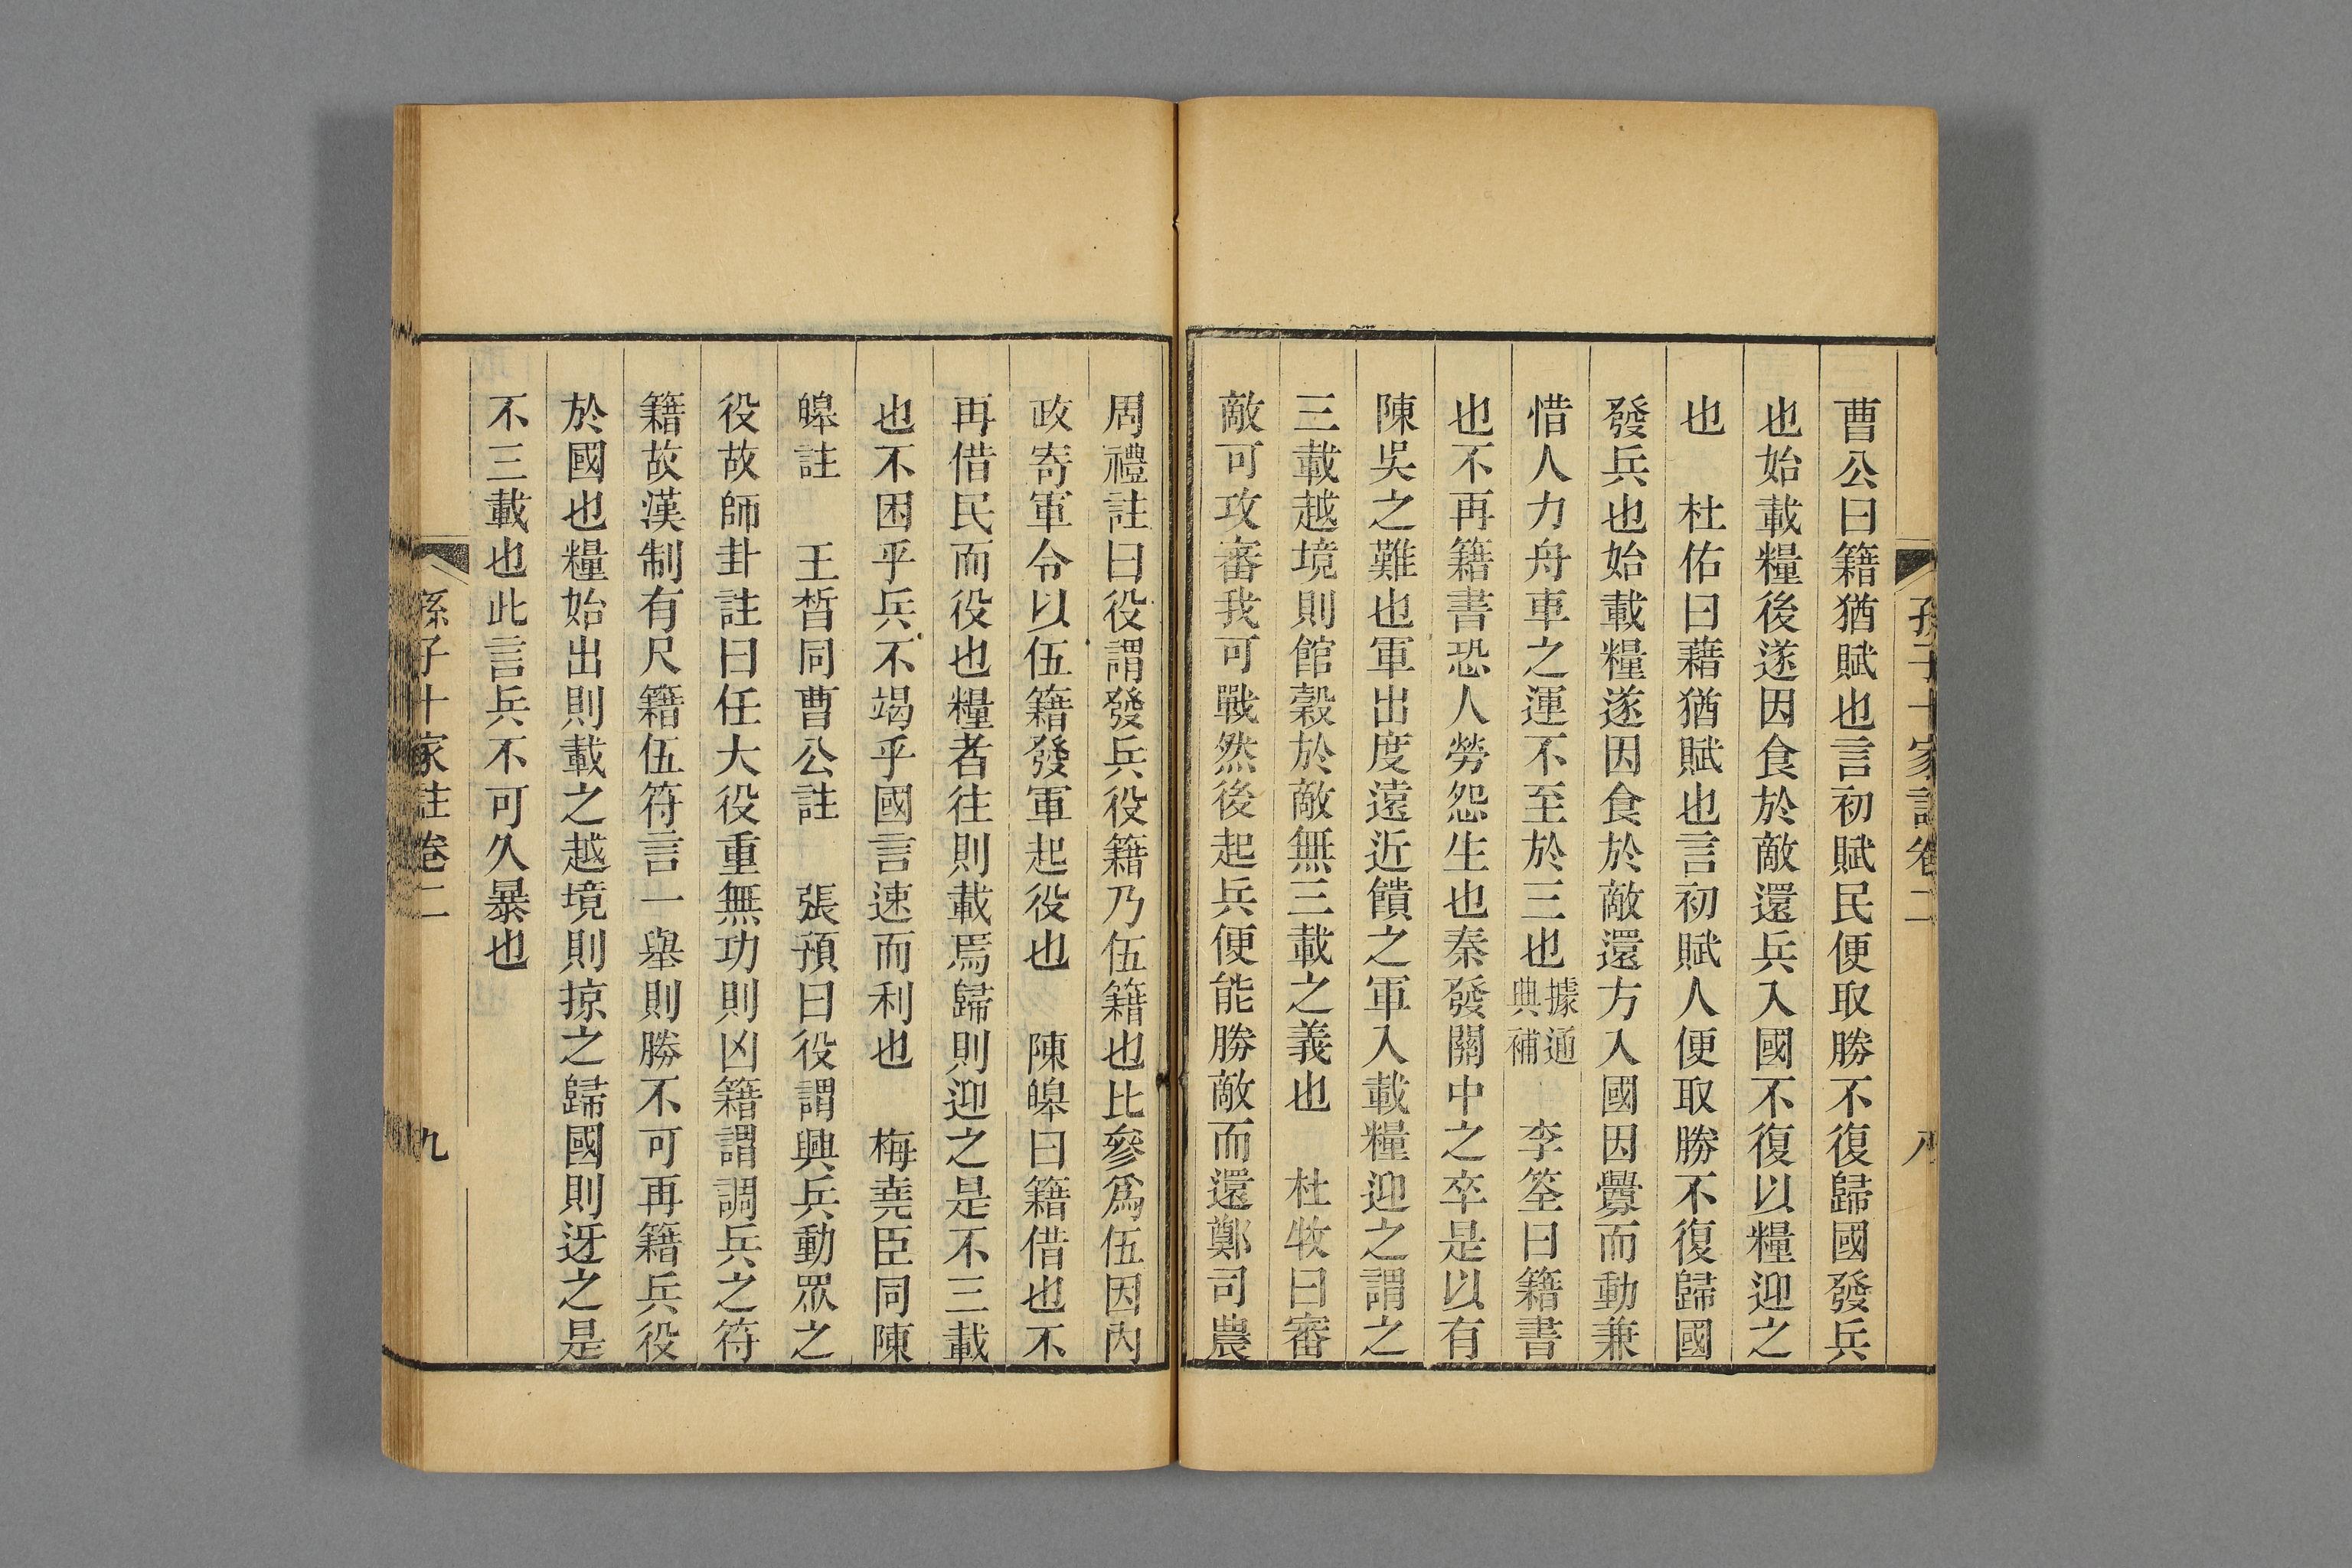 孫子十家註卷二
八
曹公曰籍猶賦也言初賦民便取勝不復歸國發兵
也始載糧後遂因食於敵還兵入國不復以糧迎之
也　杜佑曰藉猶賦也言初賦人便取勝不復歸國
發兵也始載糧遂因食於敵還方入國因釁而動兼
惜人力舟車之運不至於三也據通典補　李筌曰籍書
也不再籍書恐人勞怨生也秦發關中之卒是以有
陳吳之難也軍出度遠近饋之軍入載糧迎之謂之
三載越境則館穀於敵無三載之義也　杜牧曰審
敵可攻審我可戰然後起兵便能勝敵而還鄭司農
周禮註曰役謂發兵役籍乃伍籍也比參爲伍因內
政寄軍令以伍籍發軍起役也　陳皞曰籍借也不
再借民而役也糧者往則載焉歸則迎之是不三載
也不困乎兵不竭乎國言速而利也　梅堯臣同陳
皞註　王晳同曹公註　張預曰役謂興兵動眾之
役故師卦註曰任大役重無功則凶籍謂調兵之符
籍故漢制有尺籍伍符言一舉則勝不可再籍兵役
於國也糧始出則載之越境則掠之歸國則迓之是
不三載也此言兵不可久暴也
孫子十家註卷二
九